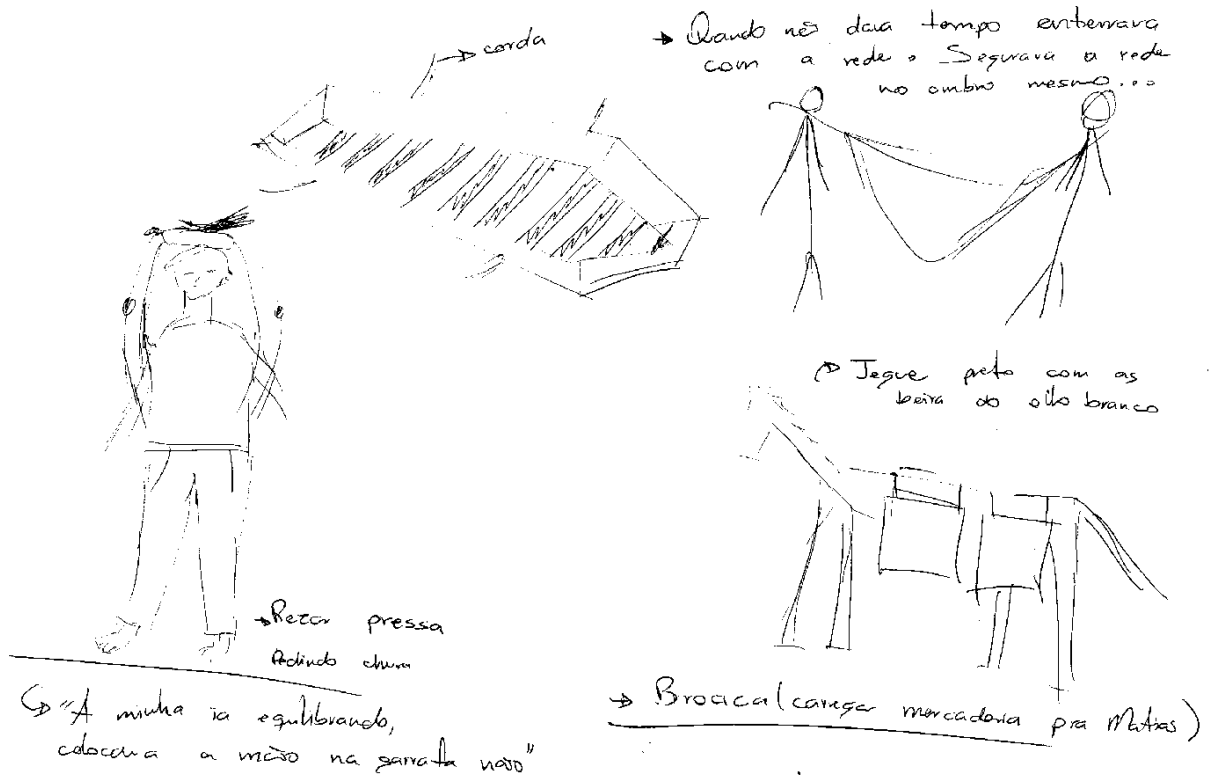 corda
Quando não dava tempo enterrava
com a rede. Segurava a rede
no ombro mesmo...
Jegue preto com as
beira do olho branco
Rezar pressia
Pedindo chuva
"A minha ia equilibrando,
colocava a mão na garrafa não"
Brocaca (carregar mercadoria pra Matias)